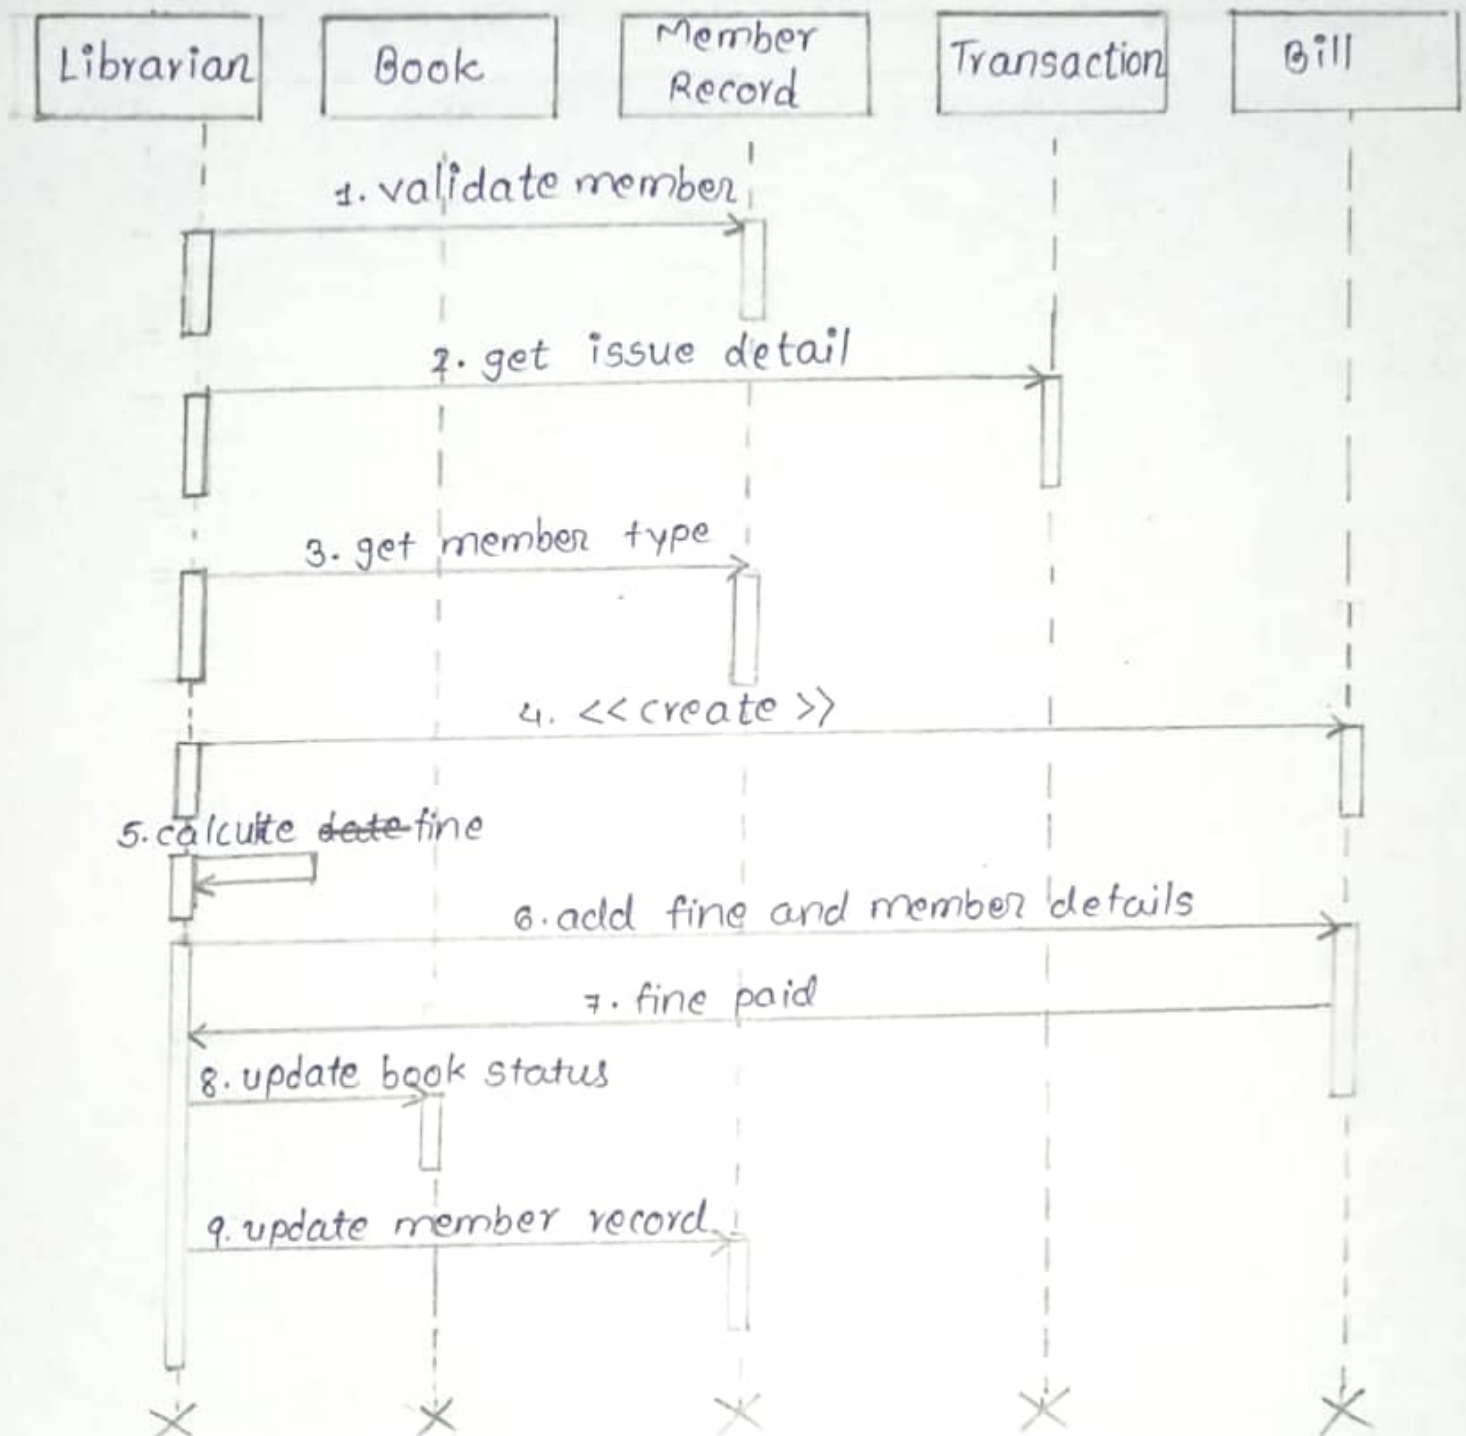 Librarian
Book
Member
Record
Transaction
Bill
1. validate member
2. get issue detail
3. get member type
4. <<create>>
5. calculte date fine
6. add fine and member details
7. fine paid
8. update book status
9. update member record